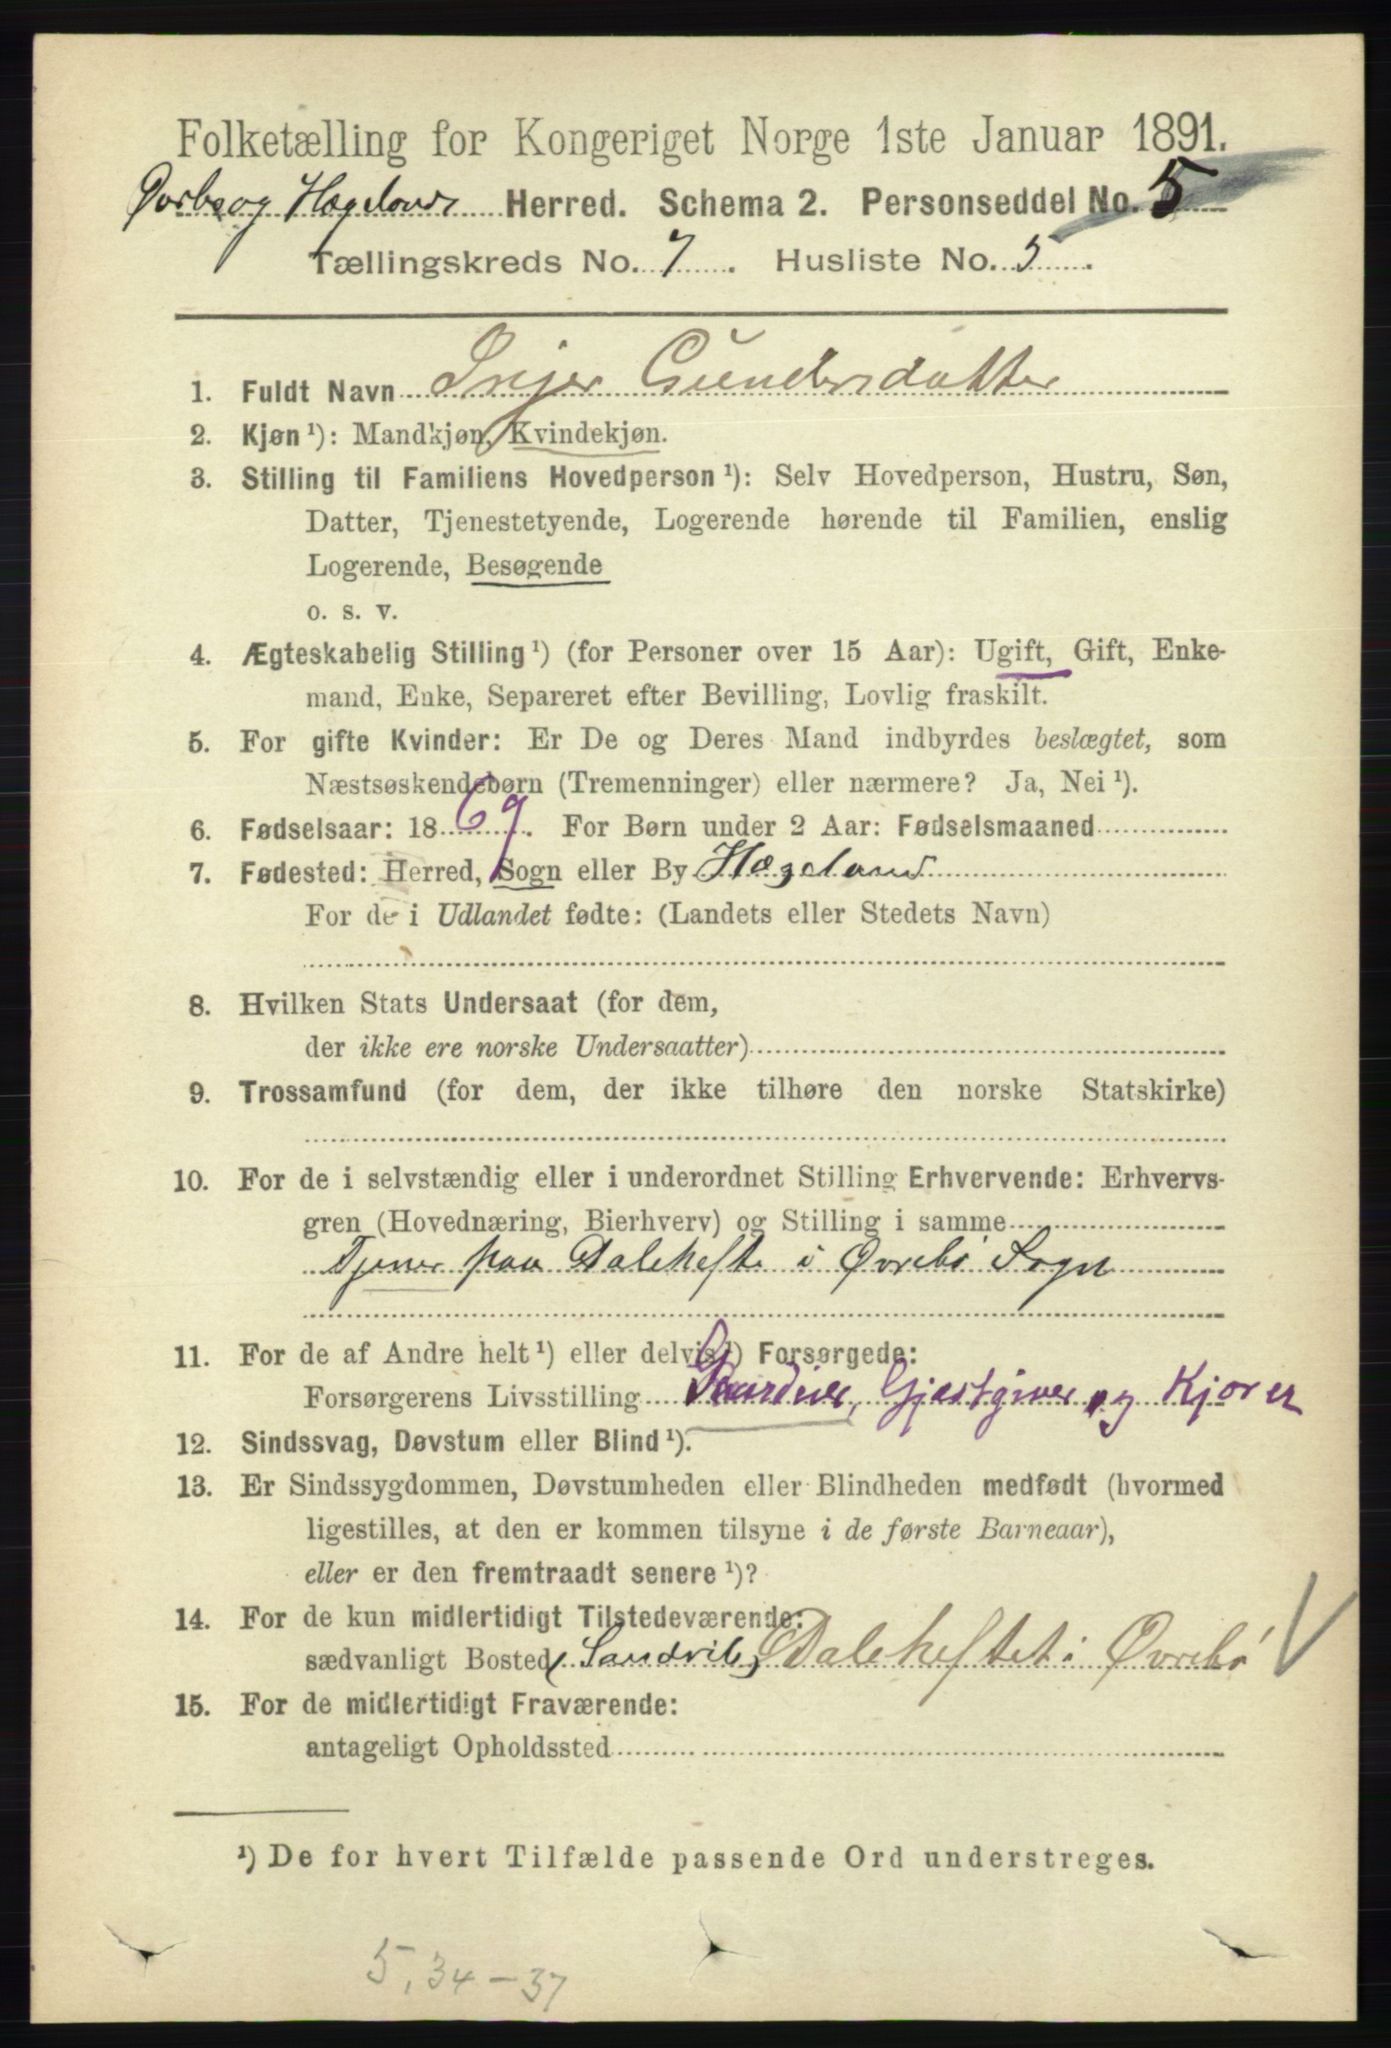 Folketælling for Kongeriget Norge 1ste Januar 1891.
Øvrebø og Hægeland Herred. Schema 2. Personseddel No. 5
Tællingskreds No. 7. Husliste No. 5.
1. Fuldt Navn Inger Gundersdatter
2. Kjøn ¹): Mandkjøn, Kvindekjøn.
3. Stilling til Familiens Hovedperson ¹): Selv Hovedperson, Hustru, Søn,
Datter, Tjenestetyende, Logerende hørende til Familien, enslig
Logerende, Besøgende
o. s. v.
4. Ægteskabelig Stilling ¹) (for Personer over 15 Aar): Ugift, Gift, Enke-
mand, Enke, Separeret efter Bevilling, Lovlig fraskilt.
5. For gifte Kvinder: Er De og Deres Mand indbyrdes beslægtet, som
Næstsøskendebørn (Tremenninger) eller nærmere? Ja, Nei ¹).
6. Fødselsaar: 1869. For Børn under 2 Aar: Fødselsmaaned
7. Fødested: Herred, Sogn eller By Hægeland
For de i Udlandet fødte: (Landets eller Stedets Navn)
8. Hvilken Stats Undersaat (for dem,
der ikke ere norske Undersaatter)
9. Trossamfund (for dem, der ikke tilhøre den norske Statskirke)
10. For de i selvstændig eller i underordnet Stilling Erhvervende: Erhvervs-
gren (Hovednæring, Bierhverv) og Stilling i samme
Tjener paa Dalekefte i Øvrebø Sogn
11. For de af Andre helt ¹) eller delvis ¹) Forsørgede:
Forsørgerens Livsstilling Gaardeier, Gjæstgiver og Kjører
12. Sindssvag, Døvstum eller Blind ¹).
13. Er Sindssygdommen, Døvstumheden eller Blindheden medfødt (hvormed
ligestilles, at den er kommen tilsyne i de første Barneaar),
eller er den fremtraadt senere ¹)?
14. For de kun midlertidigt Tilstedeværende:
sædvanligt Bosted (Sandvik) Dalekeftet i Øvrebø V
15. For de midlertidigt Fraværende:
antageligt Opholdssted
¹) De for hvert Tilfælde passende Ord understreges.
5, 34-37